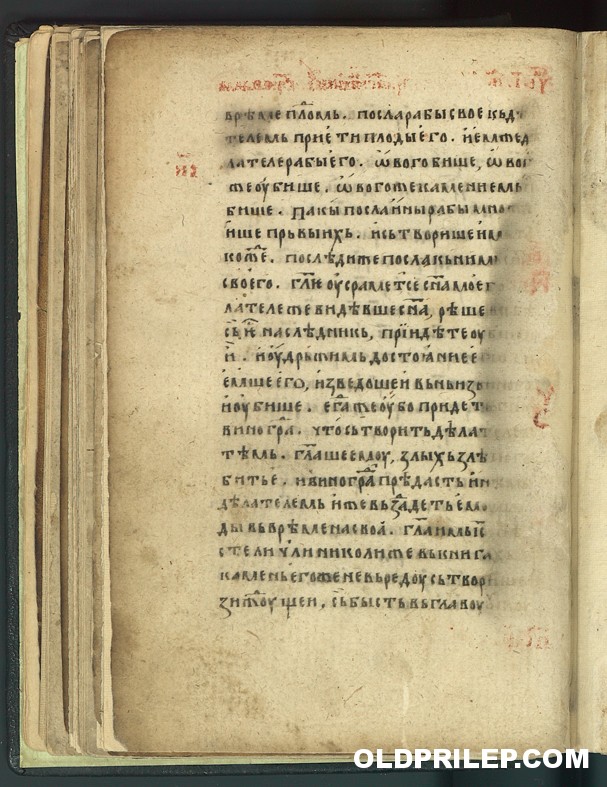 врѣме пл҃омь. посла рабы свое кь д
телемь прие ти плоды его. и емше д
лателе рабы его. ѡвого бише, ѡво
же оубише. ѡвогоже камениемь
бише. пакы посла ины рабы мно
ише прьвыихь. и сьтворише им
кожⷣе. послѣдиже посла кь ним
своего. гл҃ѥ оусраметсе сн҃а моег
латележе видѣвше сн҃а, рѣше
сьи ⷭ҇ наслѣдникь, приидѣте оу
и. и оудрьжимь достоꙗние е
емше его, изведоше и вьнь из
и оубише. егⷣа же оубо придеть
виногрⷣа. что сьтворить дѣла
тѣмь. гл҃аше емоу, злыхь злѣ
битье. и виногрⷣа прѣдасть ин
дѣлателемь иже вьзⷣадеть емо
ды вь врѣмена своꙗ. гл҃а имь іс
стели ч ли николиже вь книга
камень егоже не вьредоу сьтвор
зижⷣоущеи, сь бысть вь главоу
OLDPRILEP.COM